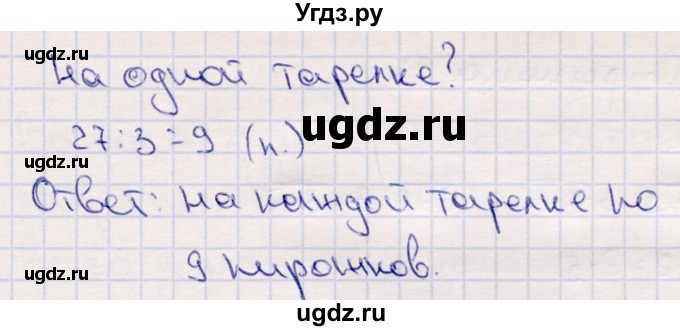 Угдз.ру
ugdz.ru ugdz.ru
На одной тарелке?
27:3=9 (п.)
ugdz.ru
ugdz.ru
Ответ: На каждой тарелке по
9 пирожков.
ugdz.ru
ugdz.ru
ugdz.ru